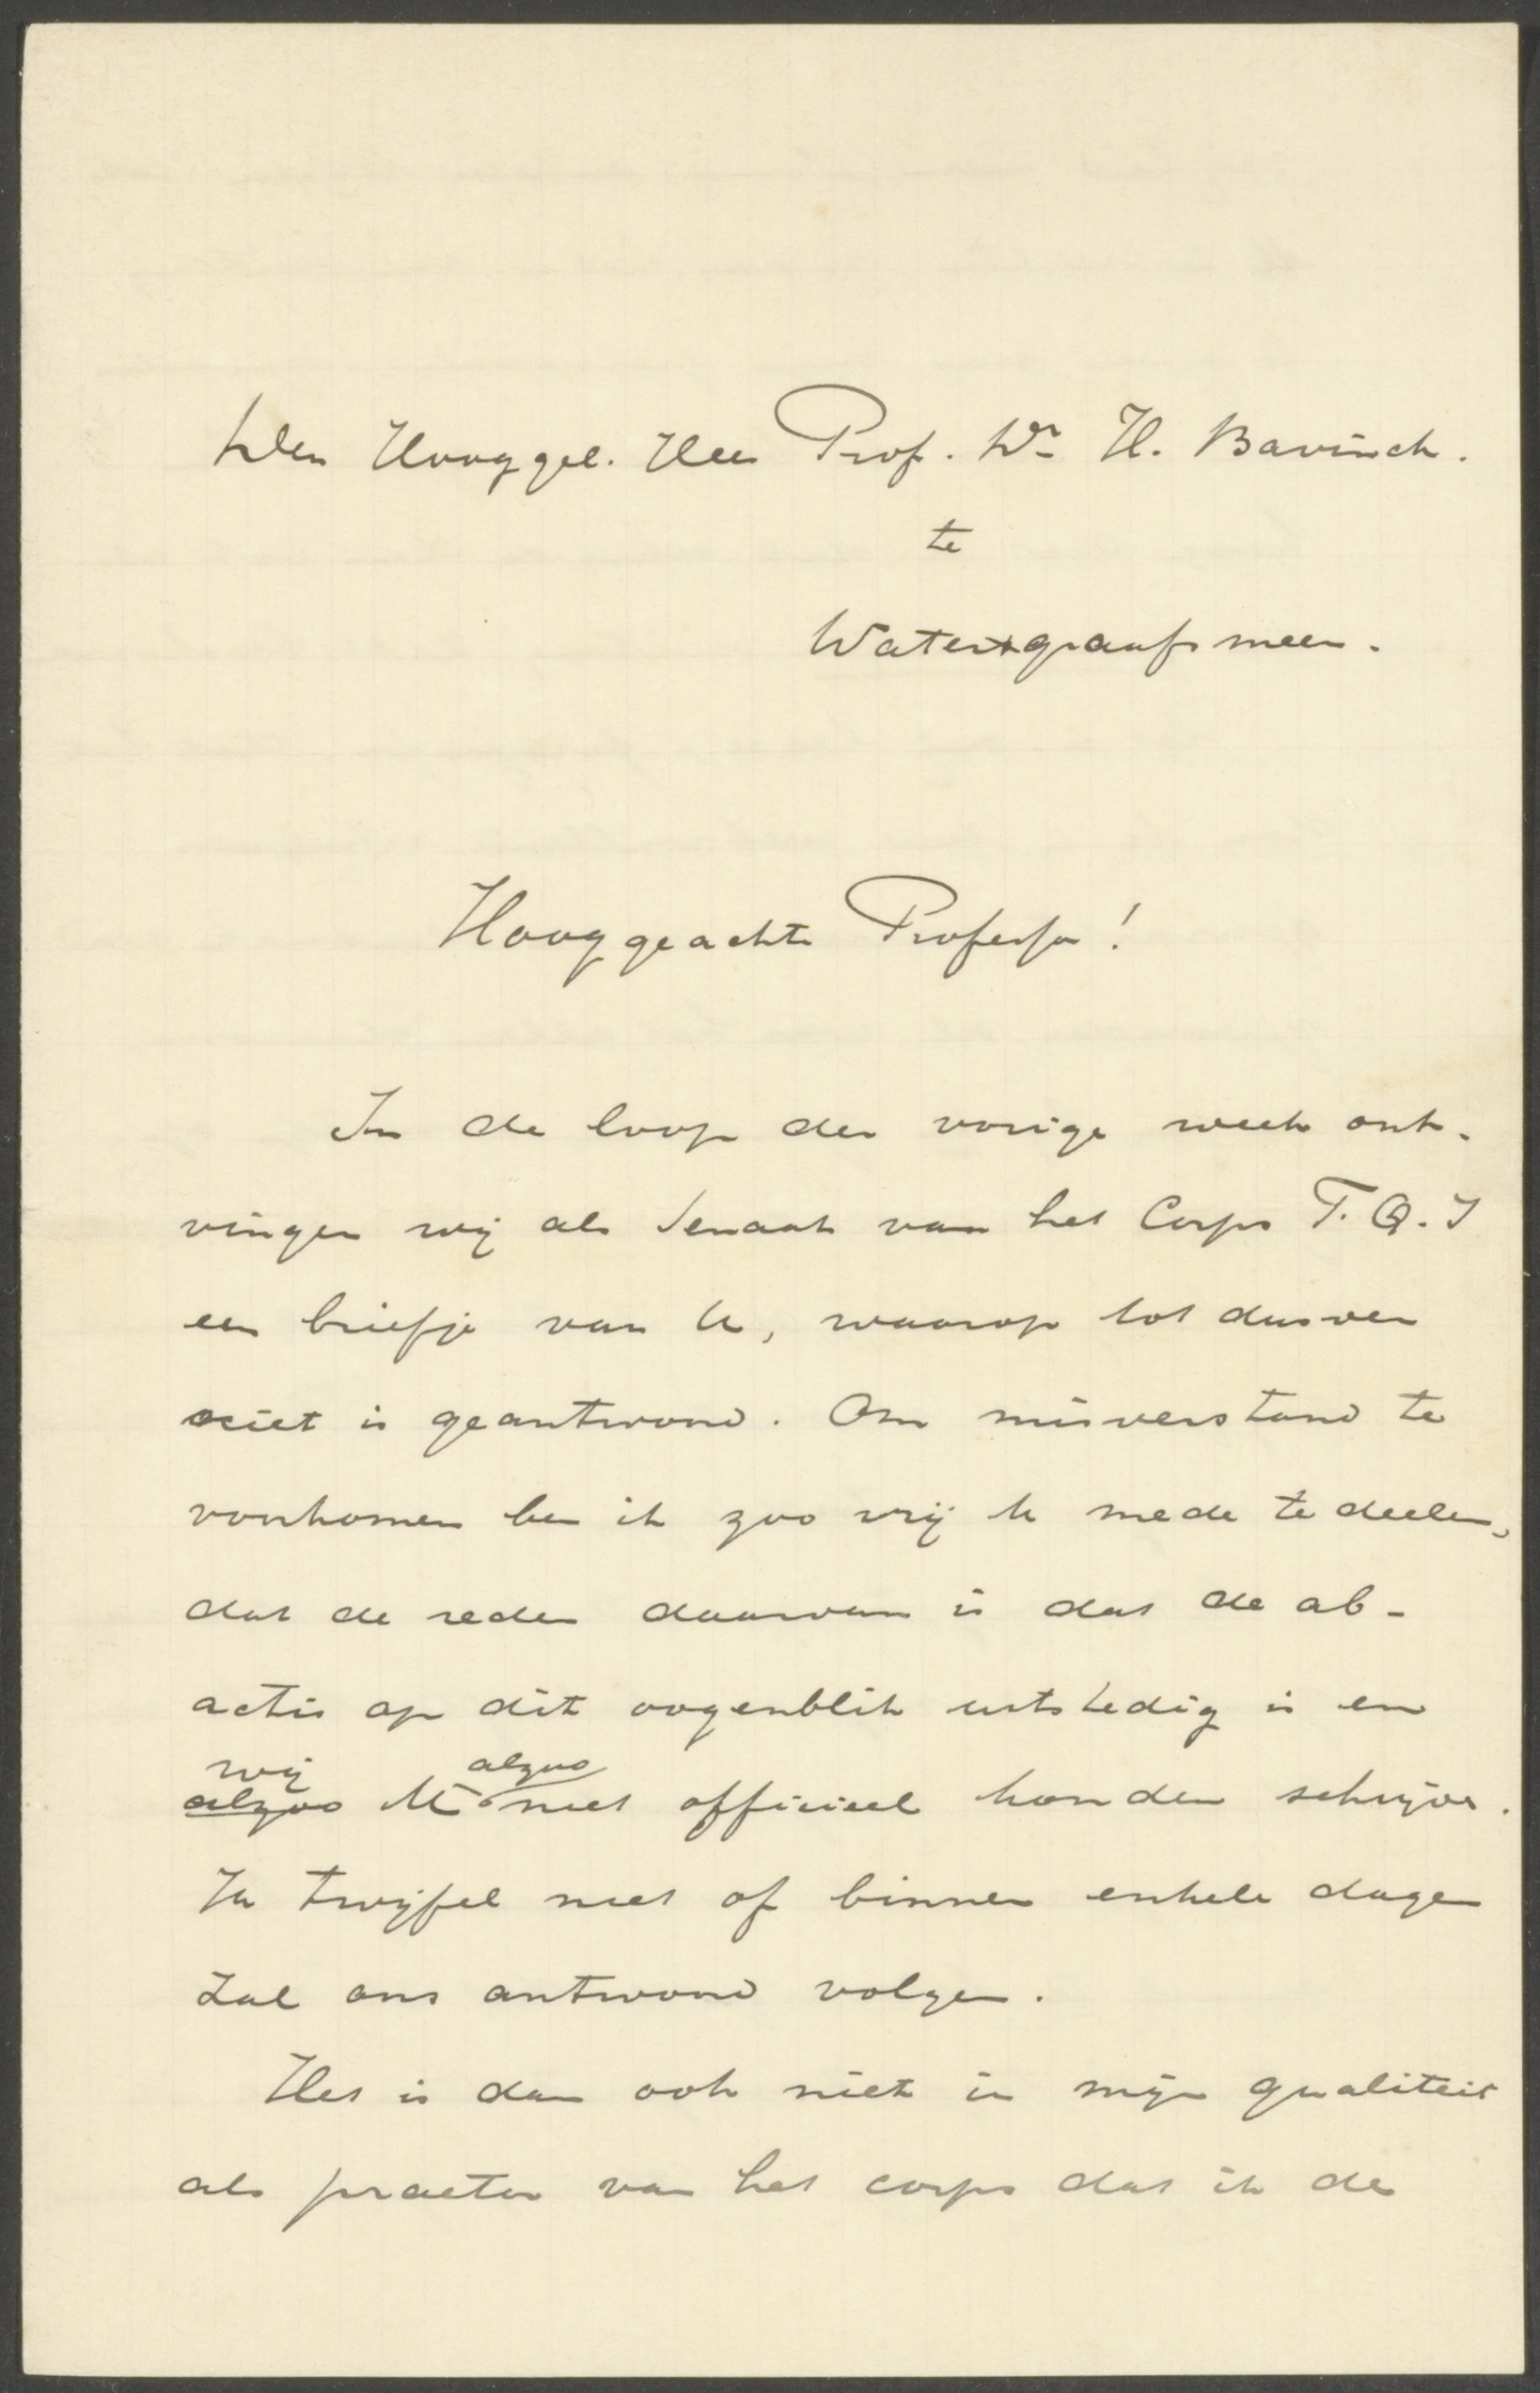 Den Hooggel. Heer Prof. Dr H. Bavinck.
te
Watergraafsmeer.
Hooggeachte Professor!
In de loop der vorige week ont-
vingen wij als Senaat van het Corps F. Q. I
een briefje van U, waarop tot dusver
niet is geantwoord. Om misverstand te
voorkomen ben ik zoo vrij U mede te deelen,
dat de reden daarvan is dat de ab-
actis op dit oogenblik uitstedig is en
wij alzoo
alzoo U niet officieel konden schrijven.
Ik twijfel niet of binnen enkele dagen
zal ons antwoord volgen.
Het is dan ook niet in mijn qualiteit
als praetor van het corps dat ik de